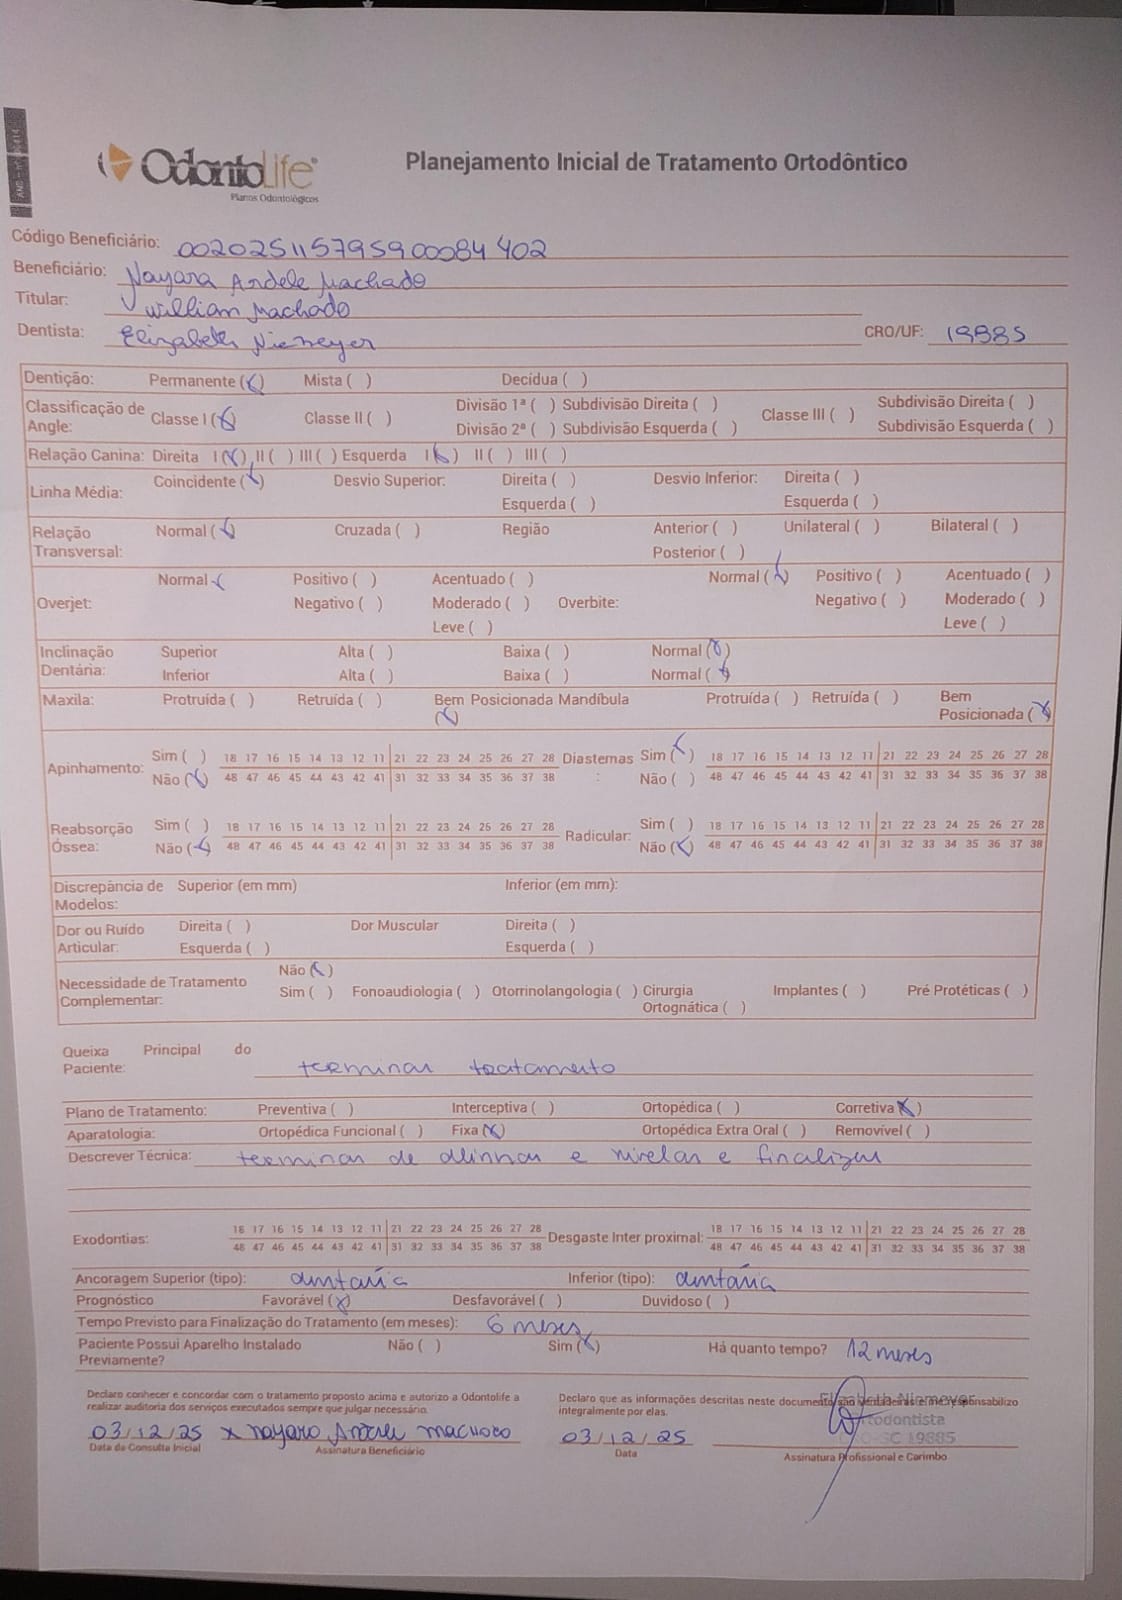 OdontoLife
Planos Odontológicos
Planejamento Inicial de Tratamento Ortodôntico
Código Beneficiário: 00202511579590008４402
Beneficiário: Nayara Andele Machado
Titular: William Machado
Dentista: Elizabeth Niemeyer CRO/UF: 19885
Dentição: Permanente (X) Mista ( ) Decídua ( )
Classificação de Angle: Classe I (X) Classe II ( ) Divisão 1ª ( ) Subdivisão Direita ( ) Classe III ( ) Subdivisão Direita ( )
Divisão 2ª ( ) Subdivisão Esquerda ( ) Subdivisão Esquerda ( )
Relação Canina: Direita I (X) II ( ) III ( ) Esquerda I (X) II ( ) III ( )
Linha Média: Coincidente (X) Desvio Superior: Direita ( ) Desvio Inferior: Direita ( )
Esquerda ( ) Esquerda ( )
Relação Transversal: Normal (X) Cruzada ( ) Região Anterior ( ) Unilateral ( ) Bilateral ( )
Posterior ( )
Overjet: Normal X Positivo ( ) Acentuado ( ) Overbite: Normal (X) Positivo ( ) Acentuado ( )
Negativo ( ) Moderado ( ) Negativo ( ) Moderado ( )
Leve ( ) Leve ( )
Inclinação Dentária: Superior Alta ( ) Baixa ( ) Normal (X)
Inferior Alta ( ) Baixa ( ) Normal (X)
Maxila: Protruída ( ) Retruída ( ) Bem Posicionada (X) Mandíbula Protruída ( ) Retruída ( ) Bem Posicionada (X)
Apinhamento: Sim ( ) 18 17 16 15 14 13 12 11 21 22 23 24 25 26 27 28 Diastemas: Sim (X) 18 17 16 15 14 13 12 11 21 22 23 24 25 26 27 28
Não (X) 48 47 46 45 44 43 42 41 31 32 33 34 35 36 37 38 Não ( ) 48 47 46 45 44 43 42 41 31 32 33 34 35 36 37 38
Reabsorção Óssea: Sim ( ) 18 17 16 15 14 13 12 11 21 22 23 24 25 26 27 28 Radicular: Sim ( ) 18 17 16 15 14 13 12 11 21 22 23 24 25 26 27 28
Não (X) 48 47 46 45 44 43 42 41 31 32 33 34 35 36 37 38 Não (X) 48 47 46 45 44 43 42 41 31 32 33 34 35 36 37 38
Discrepância de Modelos: Superior (em mm) Inferior (em mm):
Dor ou Ruído Articular: Direita ( ) Dor Muscular Direita ( )
Esquerda ( ) Esquerda ( )
Necessidade de Tratamento Complementar: Não (X)
Sim ( ) Fonoaudiologia ( ) Otorrinolangologia ( ) Cirurgia Ortognática ( ) Implantes ( ) Pré Protéticas ( )
Queixa Principal do Paciente: terminar tratamento
Plano de Tratamento: Preventiva ( ) Interceptiva ( ) Ortopédica ( ) Corretiva (X)
Aparatologia: Ortopédica Funcional ( ) Fixa (X) Ortopédica Extra Oral ( ) Removível ( )
Descrever Técnica: terminar de alinhar e nivelar e finalizar
Exodontias: 18 17 16 15 14 13 12 11 21 22 23 24 25 26 27 28 Desgaste Inter proximal: 18 17 16 15 14 13 12 11 21 22 23 24 25 26 27 28
48 47 46 45 44 43 42 41 31 32 33 34 35 36 37 38 48 47 46 45 44 43 42 41 31 32 33 34 35 36 37 38
Ancoragem Superior (tipo): dentária Inferior (tipo): dentária
Prognóstico Favorável (X) Desfavorável ( ) Duvidoso ( )
Tempo Previsto para Finalização do Tratamento (em meses): 6 meses
Paciente Possui Aparelho Instalado Previamente? Não ( ) Sim (X) Há quanto tempo? 12 meses
Declaro conhecer e concordar com o tratamento proposto acima e autorizo a Odontolife a
realizar auditoria dos serviços executados sempre que julgar necessário.
Declaro que as informações descritas neste documento são verdadeiras e me responsabilizo
integralmente por elas.
Elizabeth Niemeyer
Ortodontista
CRO-SC 19885
03/12/25 x Nayara Andele Machado 03/12/25
Data da Consulta Inicial Assinatura Beneficiário Data Assinatura Profissional e Carimbo